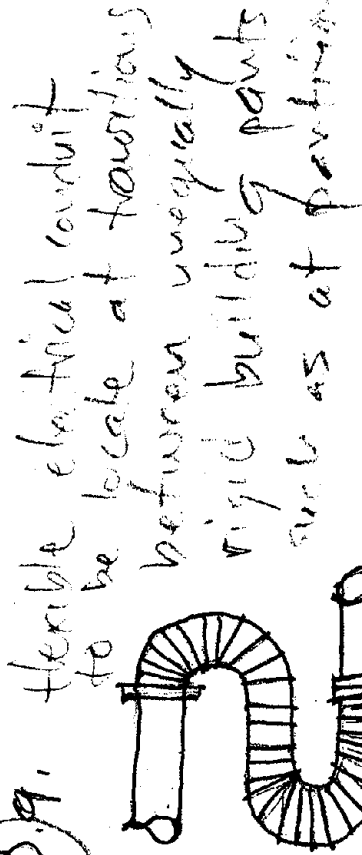 9. flexible electrical conduit
to be locate at transitions
between unequally
rigid building parts
such as at partition